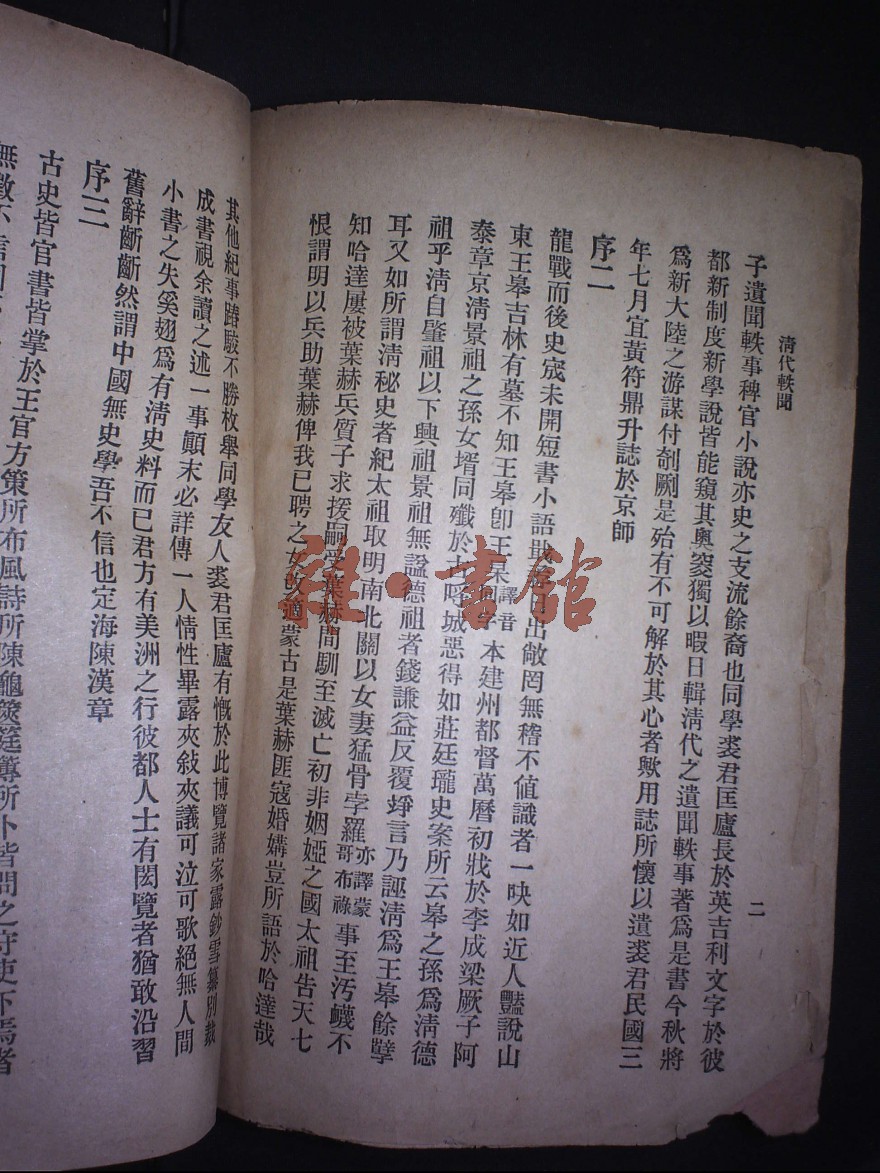 清代軼聞
二
子遺聞軼事稗官小說亦史之支流餘裔也同學裘君匡廬長於英吉利文字於彼
都新制度新學說皆能窺其奧窔獨以暇日輯清代之遺聞軼事著爲是書今秋將
爲新大陸之游謀付剞劂是殆有不可解於其心者歟用誌所懷以遺裘君民國三
年七月宜黃符鼎升誌於京師
序二
龍戰而後史宬未開短書小語日出敞罔無稽不值識者一吷如近人豔說山
東王皋吉林有墓不知王皋卽王杲譯音本建州都督萬曆初戕於李成梁厥子阿
泰章京清景祖之孫女壻同殲於古呼城惡得如莊廷瓏史案所云皋之孫爲清德
祖乎清自肇祖以下興祖景祖無謚德祖者錢謙益反覆竫言乃誣清爲王皋餘孽
耳又如所謂清秘史者紀太祖取明南北關以女妻猛骨孛羅亦譯蒙哥布祿事至汚衊不
知哈達屢被葉赫兵質子求援嗣受葉赫間馴至滅亡初非姻婭之國太祖告天七
恨謂明以兵助葉赫俾我已聘之女改適蒙古是葉赫匪寇婚媾豈所語於哈達哉
其他紀事踳駮不勝枚舉同學友人裘君匡廬有慨於此博覽諸家露鈔雪纂別裁
成書視余讀之述一事顚末必詳傳一人情性畢露夾敍夾議可泣可歌絕無人間
小書之失奚翅爲有清史料而已君方有美洲之行彼都人士有閎覽者猶敢沿習
舊辭齗齗然謂中國無史學吾不信也定海陳漢章
序三
古史皆官書皆掌於王官方策所布風詩所陳龜筴筳篿所卜皆問之守吏下焉者
無徵不信
雅·書館